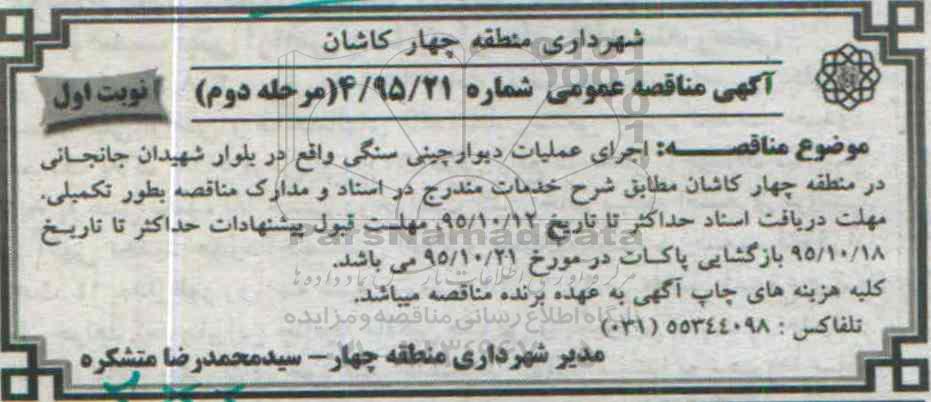 شهرداری منطقه چهار کاشان
آگهی مناقصه عمومی شماره ۴/۹۵/۲۱(مرحله دوم)
نوبت اول
موضوع مناقصـــــه: اجرای عملیات دیوارچینی سنگی واقع در بلوار شهیدان جانجانی
در منطقه چهار کاشان مطابق شرح خدمات مندرج در اسناد و مدارک مناقصه بطور تکمیلی.
مهلت دریافت اسناد حداکثر تا تاریخ ۹۵/۱۰/۱۲، مهلت قبول پیشنهادات حداکثر تا تاریخ
۹۵/۱۰/۱۸ بازگشایی پاکات در مورخ ۹۵/۱۰/۲۱ می باشد.
کلیه هزینه های چاپ آگهی به عهده برنده مناقصه میباشد.
تلفاکس : ۵۵۳۴۴۰۹۸ (۰۳۱)
مدیر شهرداری منطقه چهار– سیدمحمدرضا متشکره
ParsNamadData
پایگاه اطلاع رسانی مناقصه و مزایده